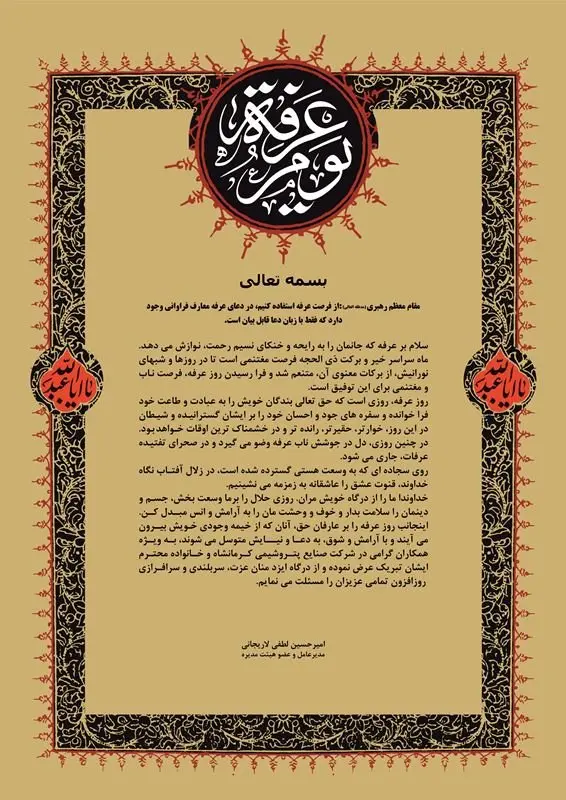 يوم عرفة
بسمه تعالی
مقام معظم رهبری (مدظله العالی): از فرصت عرفه استفاده کنیم، در دعای عرفه معارف فراوانی وجود
دارد که فقط با زبان دعا قابل بیان است.
سلام بر عرفه که جانمان را به رایحه و خنکای نسیم رحمت، نوازش می دهد.
ماه سراسر خیر و برکت ذی الحجه فرصت مغتنمی است تا در روزها و شبهای
نورانیش، از برکات معنوی آن، متنعم شد و فرا رسیدن روز عرفه، فرصت ناب
و مغتنمی برای این توفیق است.
روز عرفه، روزی است که حق تعالی بندگان خویش را به عبادت و طاعت خود
فرا خوانده و سفره های جود و احسان خود را بر ایشان گسترانیده و شیطان
در این روز، خوارتر، حقیرتر، رانده تر و در خشمناک ترین اوقات خواهدبود.
در چنین روزی، دل در جوشش ناب عرفه وضو می گیرد و در صحرای تفتیده
عرفات، جاری می شود.
روی سجاده ای که به وسعت هستی گسترده شده است، در زلال آفتاب نگاه
خداوند، قنوت عشق را عاشقانه به زمزمه می نشینیم.
خداوندا ما را از درگاه خویش مران. روزی حلال را برما وسعت بخش، جسم و
دینمان را سلامت بدار و خوف و وحشت مان را به آرامش و انس مبدل کن.
اینجانب روز عرفه را بر عارفان حق، آنان که از خیمه وجودی خویش بیرون
می آیند و با آرامش و شوق، به دعا و نیایش متوسل می شوند، به ویژه
همکاران گرامی در شرکت صنایع پتروشیمی کرمانشاه و خانواده محترم
ایشان تبریک عرض نموده و از درگاه ایزد منان عزت، سربلندی و سرافرازی
روزافزون تمامی عزیزان را مسئلت می نمایم.
امیرحسین لطفی لاریجانی
مدیرعامل و عضو هیئت مدیره
یا اباعبدالله
یا اباعبدالله